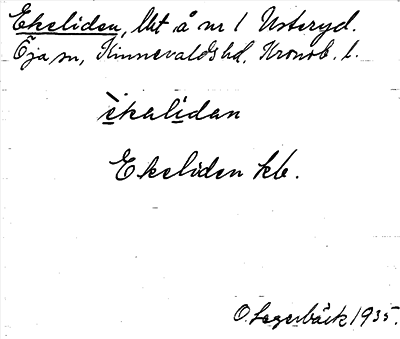 Ekeliden, lht å nr 1 Usteryd.
Öja sn, Kinnevalds hd, Kronob. l.
èkalidan
Ekeliden kb.
O. Lagerbäck 1935.